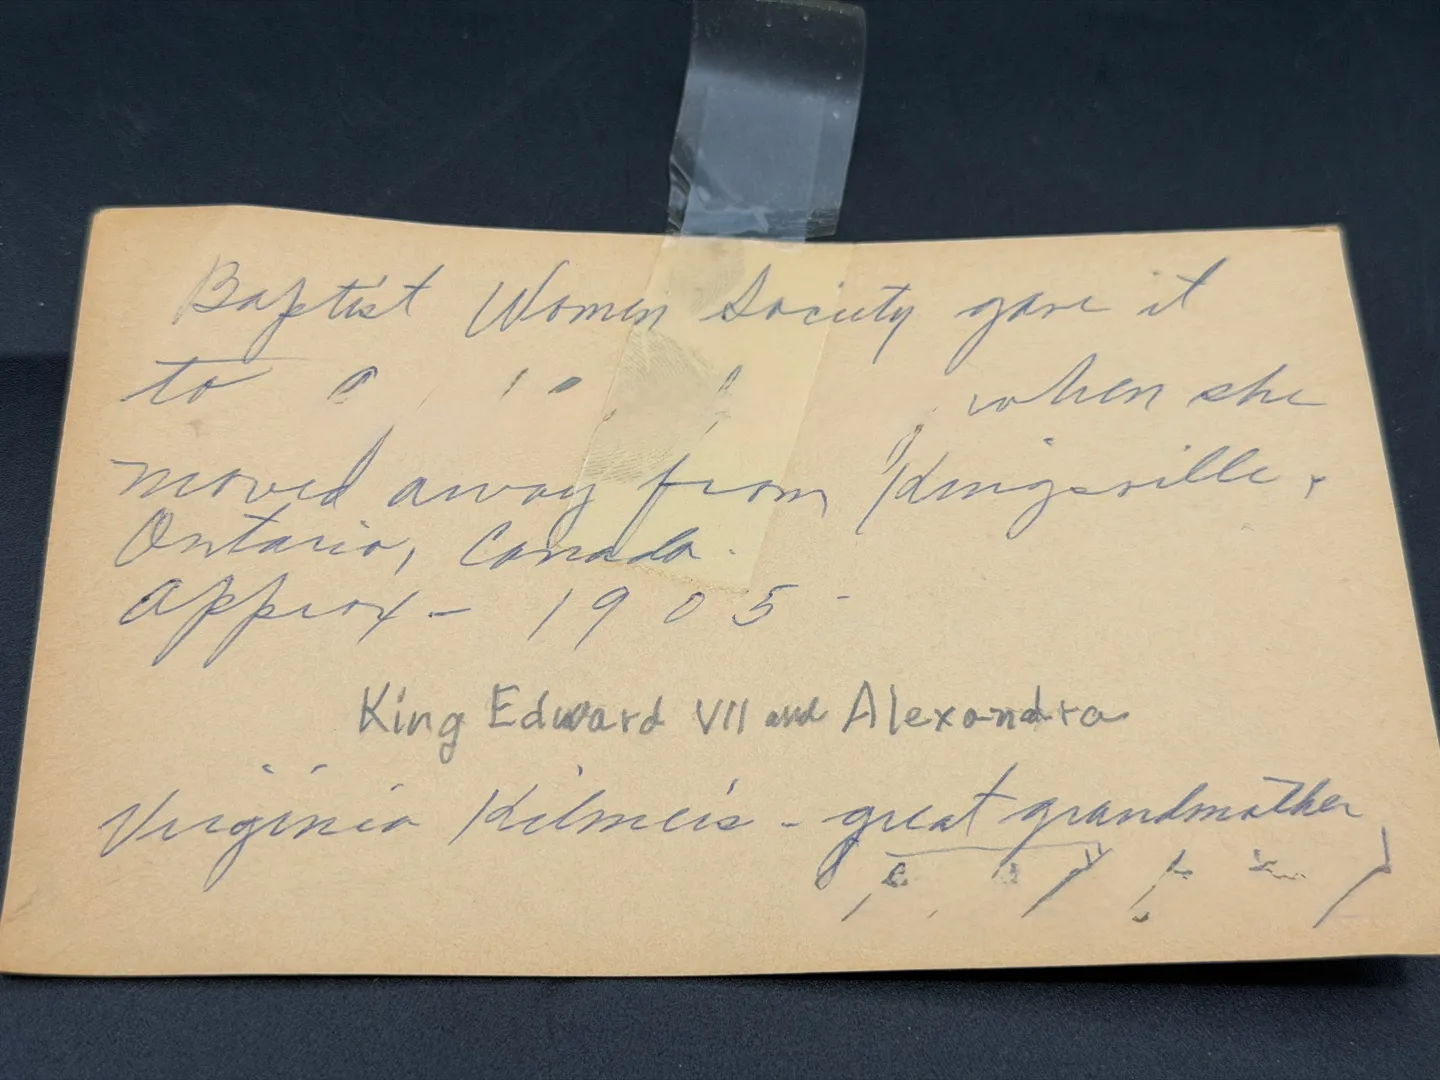 Baptist Women Society gave it
to when she
moved away from Kingsville,
Ontario, Canada.
Approx - 1905
King Edward VII and Alexandra
Virginia - great grandmother